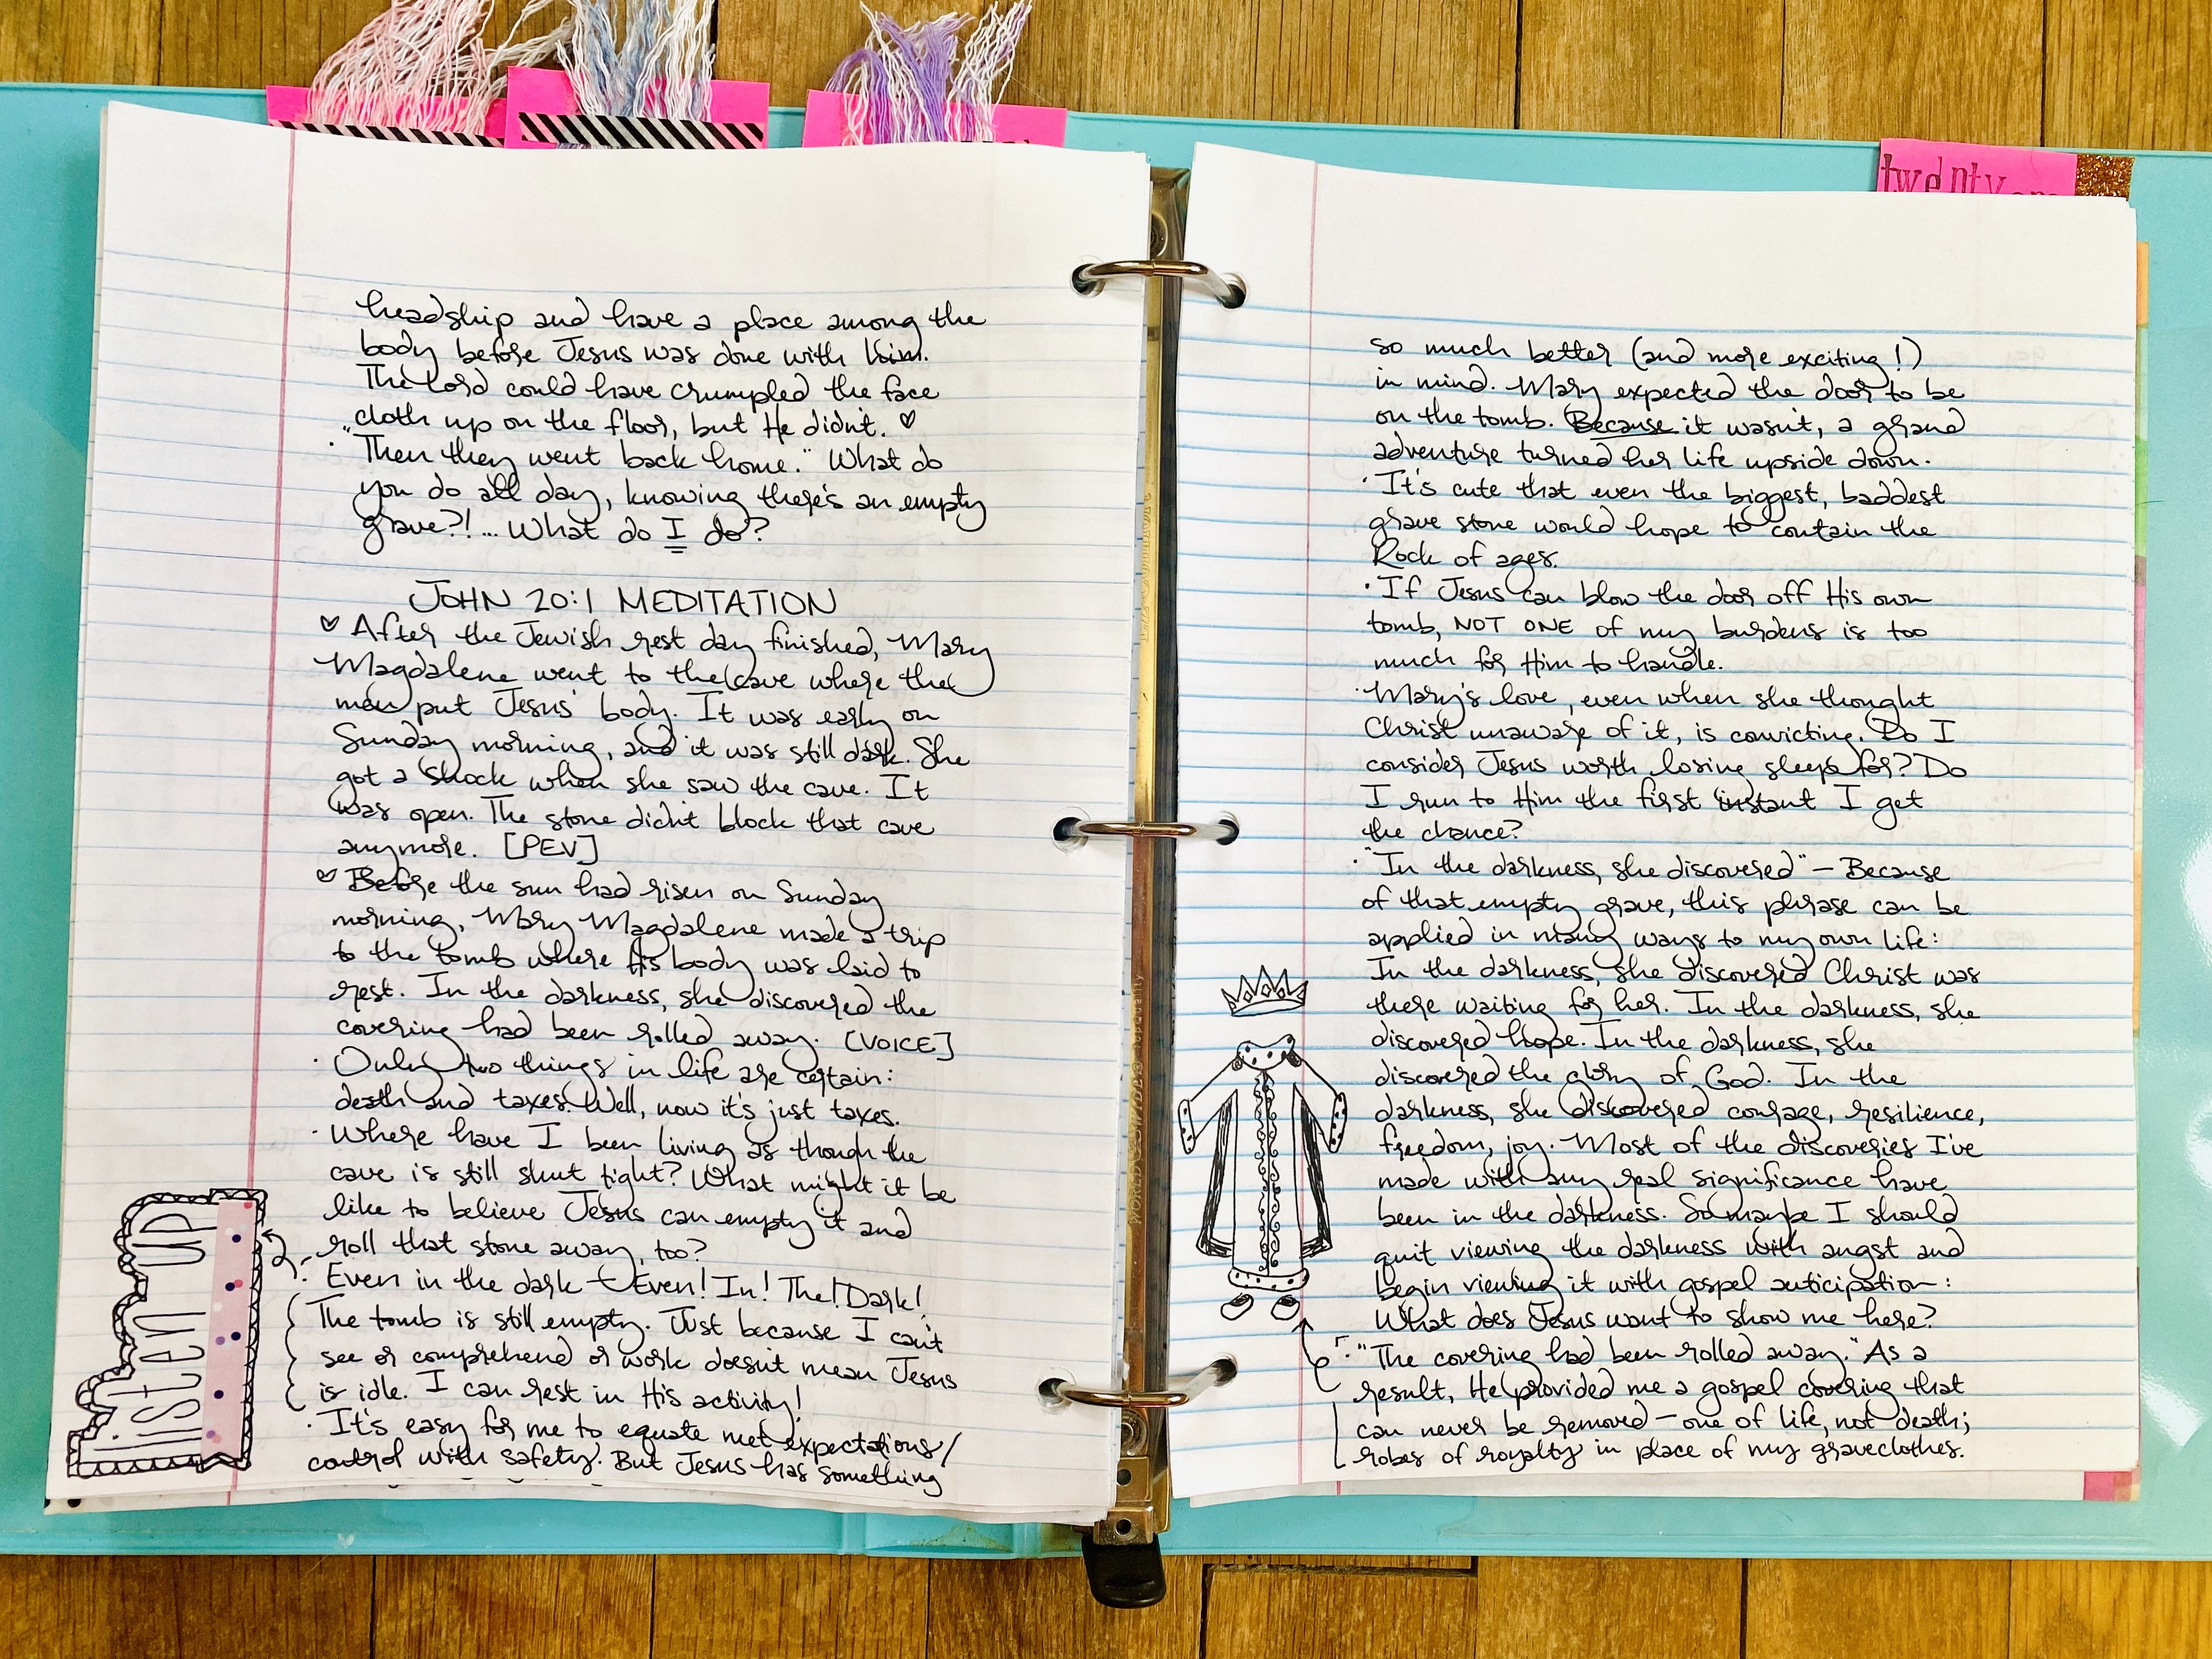 twenty
headship and have a place among the
body before Jesus was done with him.
The Lord could have crumpled the face
cloth up on the floor, but He didn't. ♡
· "Then they went back home." What do
you do all day, knowing there's an empty
grave?!... What do I do?
JOHN 20:1 MEDITATION
♡ After the Jewish rest day finished, Mary
Magdalene went to the cave where the
men put Jesus' body. It was early on
Sunday morning, and it was still dark. She
got a shock when she saw the cave. It
was open. The stone didn't block that cave
anymore. [PEV]
♡ Before the sun had risen on Sunday
morning, Mary Magdalene made a trip
to the tomb where His body was laid to
rest. In the darkness, she discovered the
covering had been rolled away. [VOICE]
· Only two things in life are certain:
death and taxes. Well, now it's just taxes.
· Where have I been living as though the
cave is still shut tight? What might it be
like to believe Jesus can empty it and
roll that stone away, too?
· Even in the dark - Even! In! The! Dark!
The tomb is still empty. Just because I can't
see or comprehend or work doesn't mean Jesus
is idle. I can rest in His activity!
· It's easy for me to equate met expectations/
control with safety. But Jesus has something
listen up
so much better (and more exciting!)
in mind. Mary expected the door to be
on the tomb. Because it wasn't, a grand
adventure turned her life upside down.
· It's cute that even the biggest, baddest
grave stone would hope to contain the
Rock of ages.
· If Jesus can blow the door off His own
tomb, NOT ONE of my burdens is too
much for Him to handle.
· Mary's love, even when she thought
Christ unaware of it, is convicting. Do I
consider Jesus worth losing sleep for? Do
I run to Him the first instant I get
the chance?
· "In the darkness, she discovered" — Because
of that empty grave, this phrase can be
applied in many ways to my own life:
In the darkness, she discovered Christ was
there waiting for her. In the darkness, she
discovered hope. In the darkness, she
discovered the glory of God. In the
darkness, she discovered courage, resilience,
freedom, joy. Most of the discoveries I've
made with any real significance have
been in the darkness. So maybe I should
quit viewing the darkness with angst and
begin viewing it with gospel anticipation:
What does Jesus want to show me here?
· "The covering had been rolled away." As a
result, He provided me a gospel covering that
can never be removed — one of life, not death;
robes of royalty in place of my graveclothes.